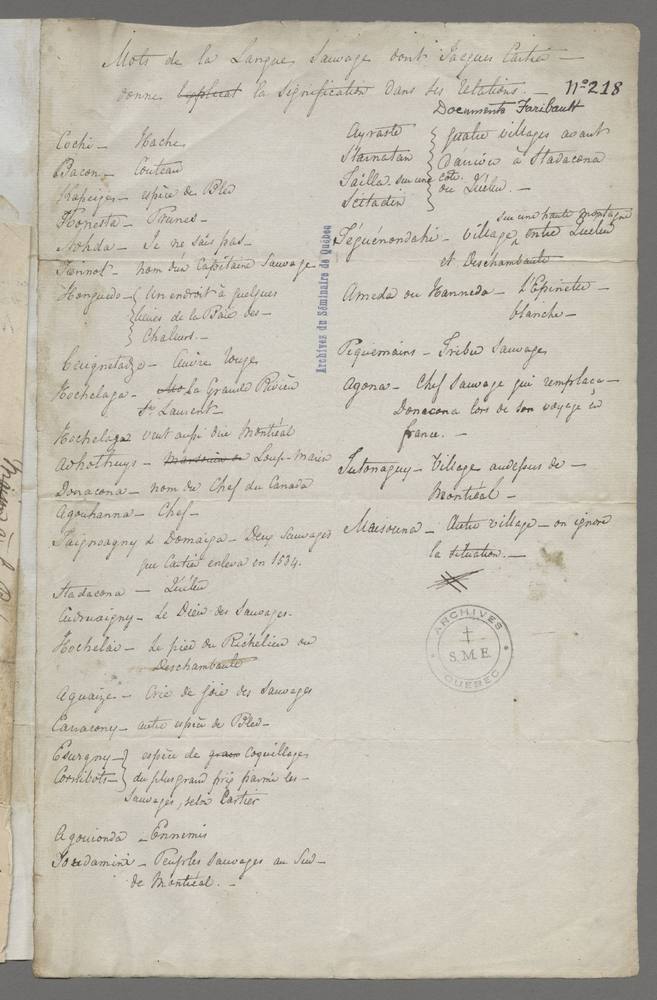 Mots de la Langue Sauvage dont Jacques Cartier —
donne l'explicat la signification dans ses relations. —
N° 218
Documents Faribault
Cochi — Hache
Bacon — Couteau
Kapeiges — espèce de Bled
Honesta — Prunes —
Nohda — Je ne sais pas —
Tennot — nom d'un Capitaine Sauvage
Honguedo — Un endroit à quelques
lieues de la Baie des —
Chaleurs. —
Caignetadze — Cuivre rouge
Hochelaga — La Grande Rivière
St. Laurent —
Hochelaga veut aussi dire Montréal
Adhothuys — Marsouin ou Loup-Marin
Donacona — nom du Chef du Canada
Agouhanna — Chef —
Taignoagny & Domaiga — Deux Sauvages
que Cartier enleva en 1534.
Stadacona — Québec
Cudruaigny — Le Dieu des Sauvages.
Hochelai — Le pied du Richelieu ou
Deschambault
Aguaize — Crie de joie des Sauvages
Caracony — autre espèce de Bled —
Esurgny —
Cornibots —
espèce de grain Coquillages
du plus grand prix parmi les —
Sauvages, selon Cartier
Agouionda — Ennemis
Toudamini — Peuples Sauvages au Sud —
de Montréal. —
Ayraste
Starnatan
Tailla. sur une côte.
Scitadin
quatre villages avant
d'arriver à Stadacona
ou Québec. —
sur une haute montagne
Téguénondahi — village entre Québec
et Deschambault
Ameda ou Hanneda — L'Epinette —
blanche —
Piquemains — Tribu Sauvages
Agona — Chef Sauvage qui remplaça —
Donacona lors de son voyage en
france. —
Tutonaguy — Village audessus de —
Montréal —
Maisouna — Autre village — on ignore
la situation. —
Archives du Séminaire de Québec
ARCHIVES
S.M.E.
QUEBEC